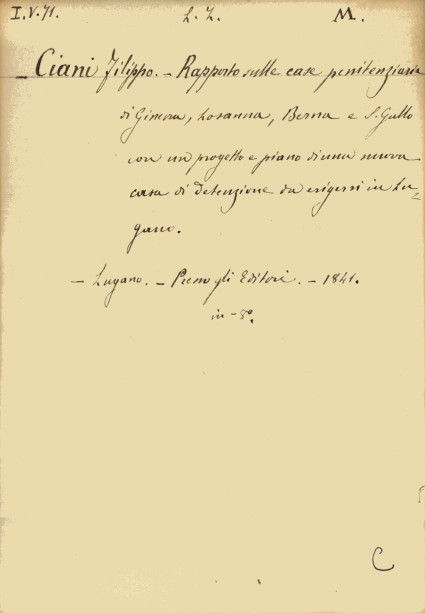 I.V.71. L. L. M.
Ciani Filippo. – Rapporto sulle case penitenziarie
di Ginevra, Losanna, Berna e S. Gallo
con un progetto e piano di una nuova
casa di detenzione da erigersi in Lu-
gano.
– Lugano. – Presso gli Editori. – 1841.
in-8º.
C